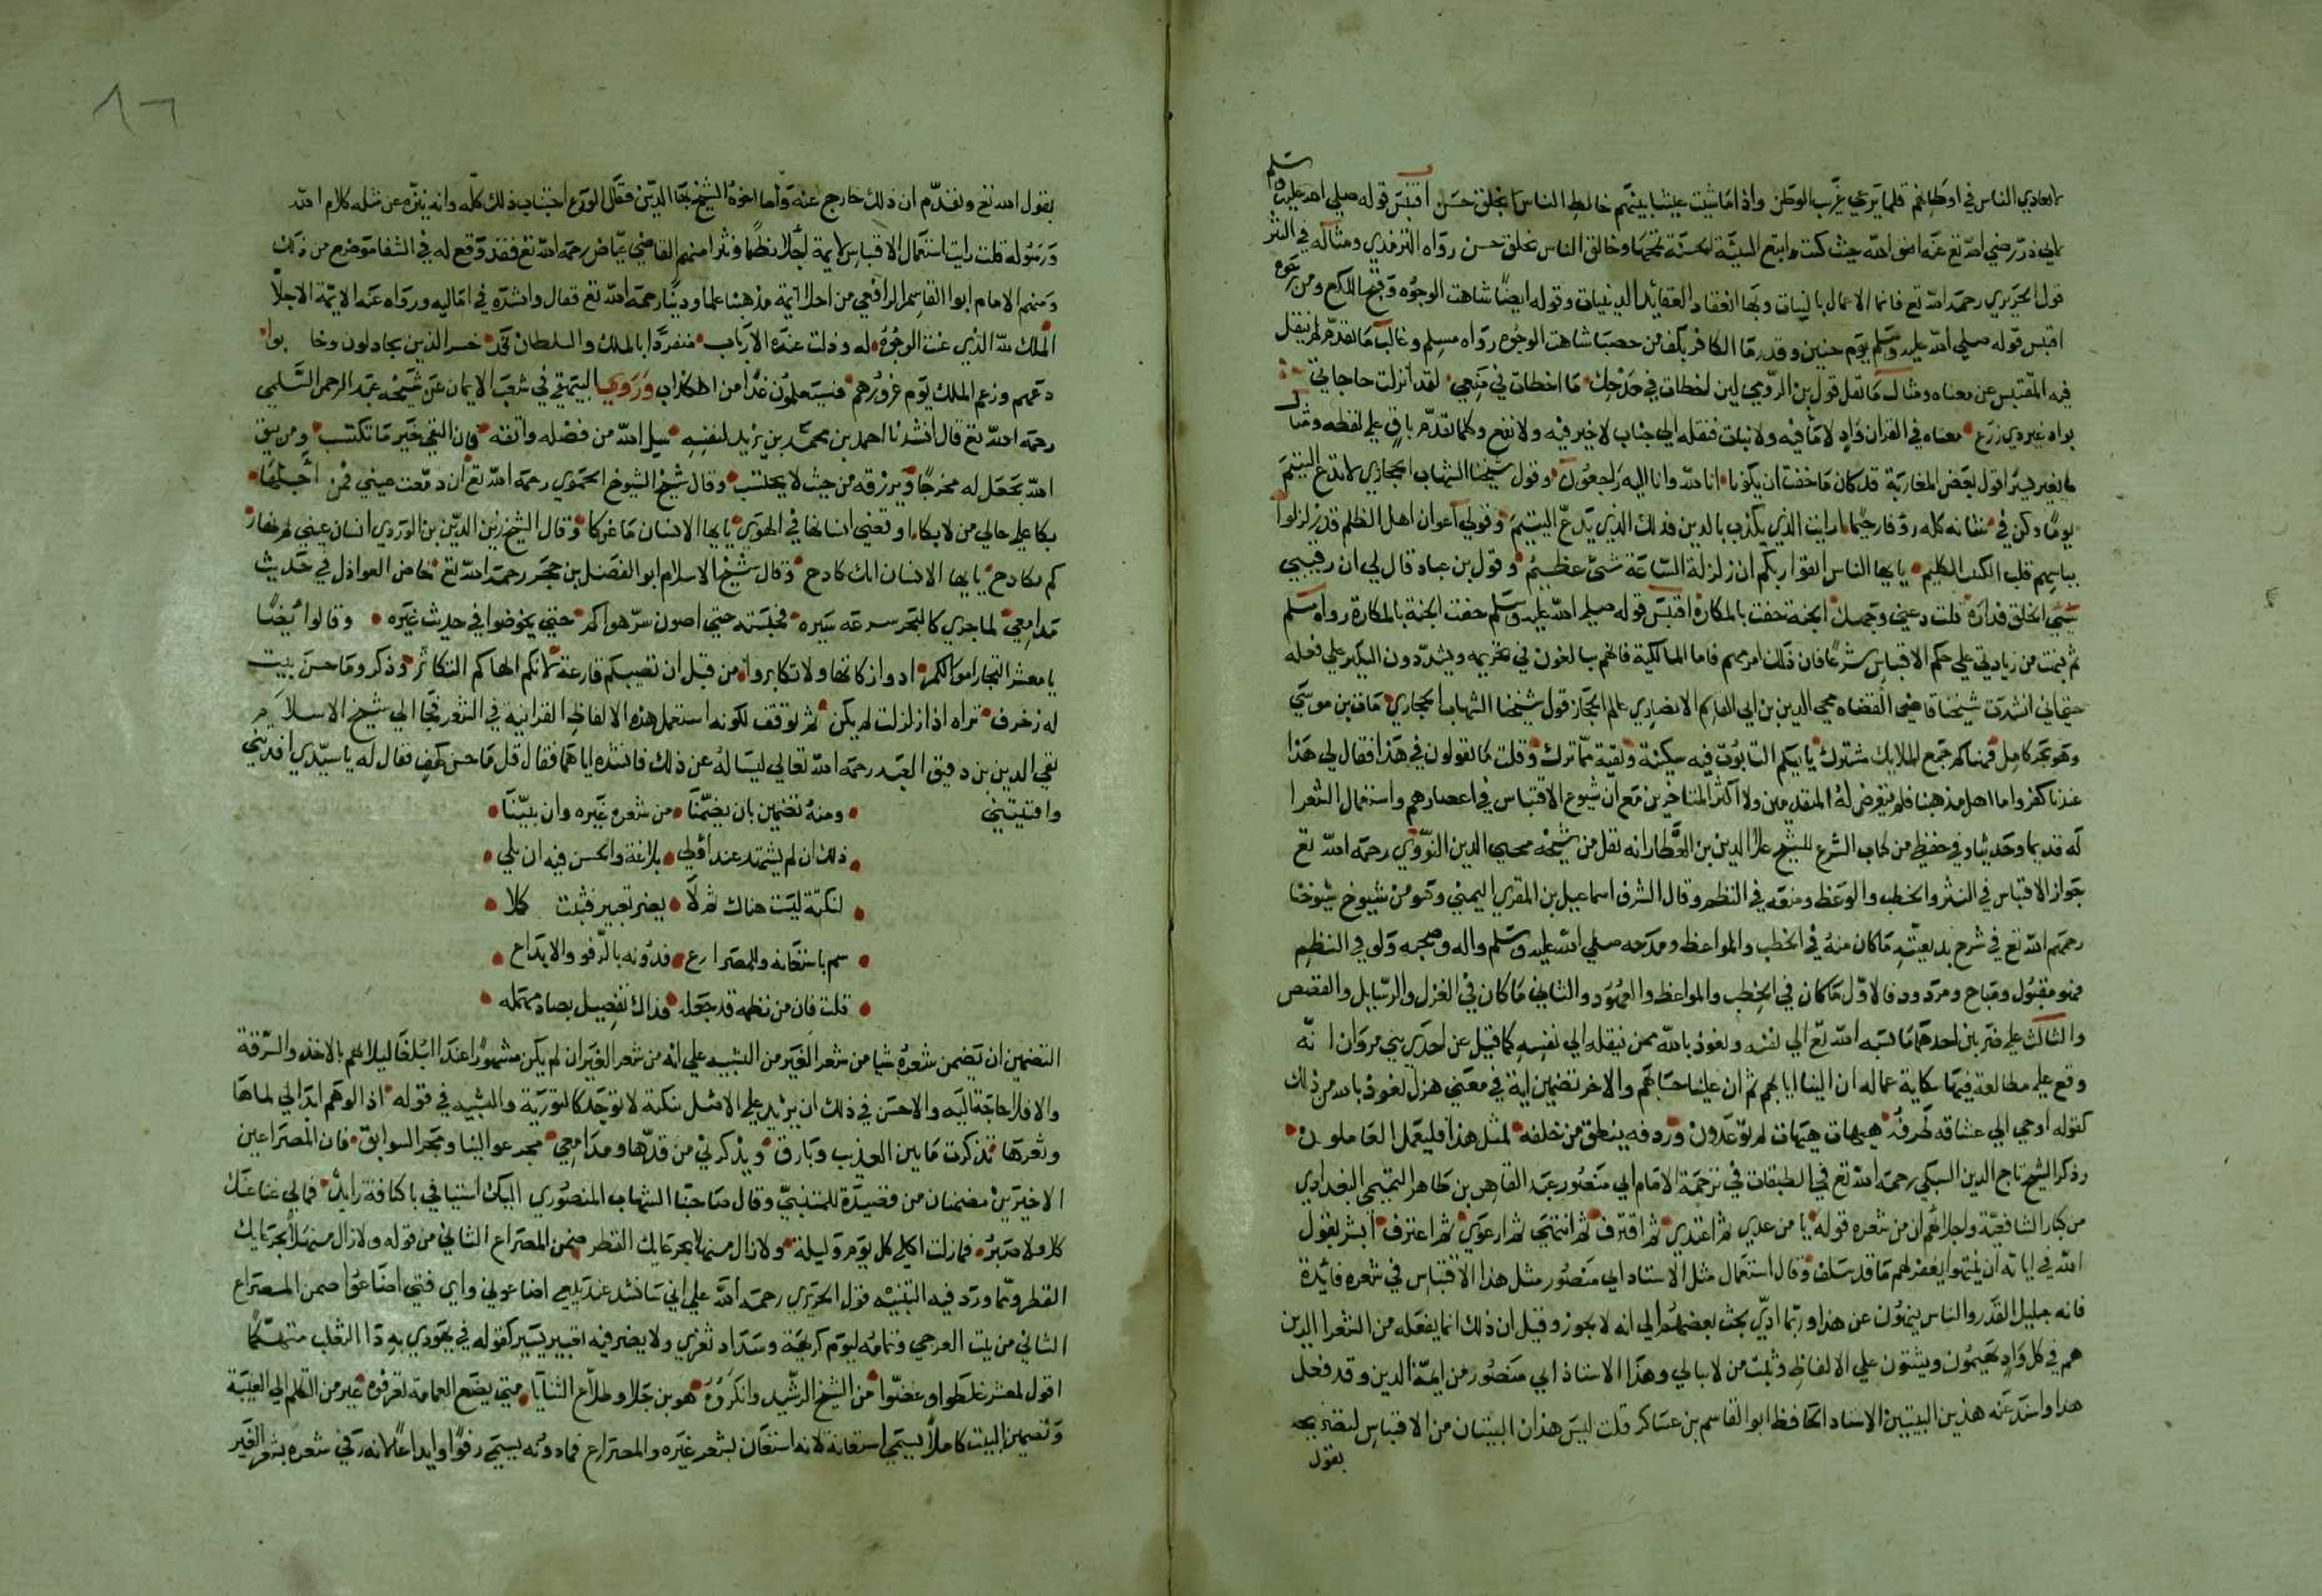 لا تعادي الناس في اوطانهم قلما يرعي غريب الوطن واذا ما شيت عيشا بينهم خالط الناس بخلق حسن اقتبس قوله صلي الله عليه وسلم
لابي ذر رضي الله تع عنه اتق الله حيث كنت واتبع السيئة الحسنة تمحها وخالق الناس بخلق حسن رواه الترمذي ومثاله في النثر
قول الحريري رحمه الله تع فانما الاعمال بالنيات وبها انعقاد العقائد الدينيات وقوله ايضا شاهت الوجوه وقبح اللكع ومن يرجوه
اقتبس قوله صلي الله عليه وسلم يوم حنين وقد رما الكافر بكف من حصبا شاهت الوجوه رواه مسلم وغالب ما تقدم لم ينقل
فيه المقتبس عن معناه ومثال ما نقل قول بن الرومي لين اخطات في مدحك ما اخطات في منعي لقد انزلت حاجاتي
بواد غير ذي زرع معناه في القران واد لا ما فيه ولا نبات فنقله الي جناب لا خير فيه ولا نفع وكلما تقدم باق علي لفظه ومثال
ما يغير يسيرا قول بعض المغاربة قد كان ما خفت ان يكونا انا لله وانا اليه راجعون وقول شيخنا الشهاب الحجازي لا تدع اليتيم
يوما وكن في شانه كله رؤفا رحيما ارايت الذي يكذب بالدين فذلك الذي يدع اليتيم وقولي اعوان اهل الظلم قد زلزلوا
بباسهم قلب الكئب الكليم يايها الناس اتقوا ربكم ان زلزلة الساعة شئ عظيم وقول بن عباد قال لي ان رقيبي
سئ الخلق فداره قلت دعني وجهك الجنة حفت بالمكاره اقتبس قوله صلي الله عليه وسلم حفت الجنة بالمكاره رواه مسلم
ثم نبهت من زيادتي علي حكم الاقتباس شرعا فان ذلك امر مهم فاما المالكية فانهم يبالغون في تحريمه ويشددون النكير علي فعله
حتي اني انشدت شيخنا قاضي القضاه محي الدين بن ابي القاسم الانصاري عالم الحجاز قول شيخنا الشهاب الحجازي مات بن موسي
وهو بحر كامل فهناكم جمع الملايك مشترك ياتيكم التابوت فيه سكينة وبقية مما ترك وقلت ما تقولون في هذا فقال لي هذا
عندنا كفر واما اهل مذهبنا فلم يتعرض له المتقدمين ولا اكثر المتاخرين مع ان شيوع الاقتباس في اعصارهم واستعمال الشعرا
له قديما وحديثا وفي حفظي من كتاب الشرع للشيخ علا الدين بن العطار انه نقل من شيخه محيي الدين النووي رحمه الله تع
جواز الاقتباس في النثر والخطب والوعظ ومنعه في النظم وقال الشرف اسماعيل بن المقري اليمني وهو من شيوخ شيوخنا
رحمهم الله تع في شرح بديعيته ما كان منه في الخطب والمواعظ ومدحه صلي الله عليه وسلم واله وصحبه ولو في النظم
فهو مقبول ومباح ومردود فالاول ما كان في الخطب والمواعظ والعهود والثاني ما كان في الغزل والرسايل والقصص
والثالث علي ضربين احدهما ما نسبه الله تع الي نفسه ونعوذ بالله ممن ينقله الي نفسه كما قيل عن احد بني مروان انه
وقع علي مطالعة فيها شكاية عماله ان الينا ايابهم ثم ان علينا حسابهم والاخر تضمين اية في معني هزل نعوذ بالله من ذلك
كقوله اوحي الي عشاقه طرفه هيهات هيهات لما توعدون وردفه ينطق من خلفه لمثل هذا فليعمل العاملون
وذكر الشيخ تاج الدين السبكي رحمه الله تع في الطبقات في ترجمة الامام ابي منصور عبد القاهر بن طاهر التميمي البغدادي
من كبار الشافعية واجلائهم ان من شعره قوله يا من عدي ثم اعتدي ثم اقترف ثم انتهي ثم ارعوي ثم اعترف ابشر بقول
الله في اياته ان ينتهوا يغفر لهم ما قد سلف وقال استعمال مثل الاستاد ابي منصور مثل هذا الاقتباس في شعره فائدة
فانه جليل القدر والناس ينهون عن هذا وربما ادي بحث بعضهم الي انه لا يجوز وقيل ان ذلك انما يفعله من الشعرا الذين
هم في كل واد يهيمون ويثبتون علي الالفاظ وثبت من لا يبالي وهذا الاستاذ ابي منصور من ايمة الدين وقد فعل
هذا واسند عنه هذين البيتين الاستاد الحافظ ابو القاسم بن عساكر قلت ليس هذان البيتان من الاقتباس لتصريحه
بقول
٨٦
بقول الله تع وتقدم ان ذلك خارج عنه واما اخوه الشيخ بها الدين فقال الورع اجتناب ذلك كله وانه ينزه عن مثله كلام الله
ورسوله قلت رايت استعمال الاقتباس لايمة اجلا نظما ونثرا منهم القاضي عياض رحمه الله تع فقد وقع له في الشفا موضع من ذلك
ومنهم الامام ابوا القاسم الرافعي من اجل ايمة مذهبنا علما ودينا رحمه الله تع فقال وانشده في اماليه ورواه عنه الايمة الاجلا
الملك لله الذي عنت الوجوه له وذلت عنده الارباب منفردا بالملك والسلطان قد خسر الذين يجادلون وخابوا
دعهم وزعم الملك يوم غرورهم فسيعلمون غدا من الكذاب وروي البيهقي في شعب الايمان عن شيخه عبد الرحمن السلمي
رحمه الله تع قال انشدنا احمد بن محمد بن يزيد لنفسه سل الله من فضله واتقه فان التقي خير ما تكتسب ومن يتق
الله يجعل له مخرجا ويرزقه من حيث لا يحتسب وقال شيخ الشيوخ الحموي رحمه الله تع ان دمعت عيني فمن اجلها
بكا علي حالي من لا بكا اوقعني انسانها في الهوي يايها الانسان ما غركا وقال الشيخ زين الدين بن الوردي انسان عيني
كم مكادح يايها الانسان انك كادح وقال شيخ الاسلام ابو الفضل بن حجر رحمه الله تع خاض العواذل في حديث
مدامعي لما جري كالبحر سرعة سيره فحبسته حتي اصون سر هواكم حتي يخوضوا في حديث غيره وقالوا ايضا
يا معشر التجار اموالكم ادوا زكاتها ولا تكابروا من قبل ان تصيبكم قارعة لانكم الهاكم التكاثر وذكر وما حسن بيت
له زخرف تراه اذا زلزلت لم يكن ثم توقف لكونه استعمل هذه الالفاظ القرانية في الشعر فجا الي شيخ الاسلام
تقي الدين بن دقيق العبد رحمه الله تعالي ليساله عن ذلك فانشده اياهما فقال قل ما حسن كهف فقال له يا سيدي افدتني
وافتيتني
ومنه تضمين بان يضمنا من شعره غيره وان بينا
ذلك ان لم يشتهر عند اولي بلاغة والحسن فيه ان يلي
لنكتة ليست هناك ثم لا يضر تغيير فبيت كلا
سم باستعانه والمصراع فدونه بالرفو والايداع
قلت فان من نظمه قد جعله فذاك تفصيل بصاد مهمله
التضمين ان يضمن شعره شيا من شعر الغير من التنبيه علي انه من شعر الغير ان لم يكن مشهورا عند البلغا ليلا يتهم بالاخذ والسرقة
والا فلا حاجة اليه والاحسن في ذلك ان يزيد علي الاصل بنكتة لا توجد كالتورية والتشبيه في قوله اذا الوهم ابدا لي لماها
وثغرها تذكرت ما بين العذيب وبارق ويذكرني من قدها ومدامعي مجر عوالينا ومجر السوابق فان المصراعين
الاخيرين مضمنان من قصيدة للمتنبي وقال صاحبنا الشهاب المنصوري اليك اشتياقي يا كنافة زايد فمالي غنا عنك
كلا ولا صبر فما زلت اكلي كل يوم وليلة ولا زال منهلا بجرعايك القطر ضمن المصراع الثاني من قوله ولا زال منهلا بجرعايك
القطر ومما ورد فيه التنبيه قول الحريري رحمه الله علي اني سانشد عند بيعي اضاعوني واي فتي اضاعوا ضمن المصراع
الثاني من بيت العرجي وتمامه ليوم كريهة وسداد ثغر ولا يضر فيه تغيير يسير كقوله في يهودي به دا الثعلب متهكما
اقول لمعشر غلطوا وغضوا من الشيخ الرشيد وانكروه هو بن جلا وطلاع الثنايا متي يضع العمامة تعرفوه غير من التكلم الي الغيبة
وتضمين البيت كاملا يسمي استعانة لانه استعان بشعر غيره والمصراع فما دونه يسمي رفوا وايداعا لانه رفي شعره بشعر الغير